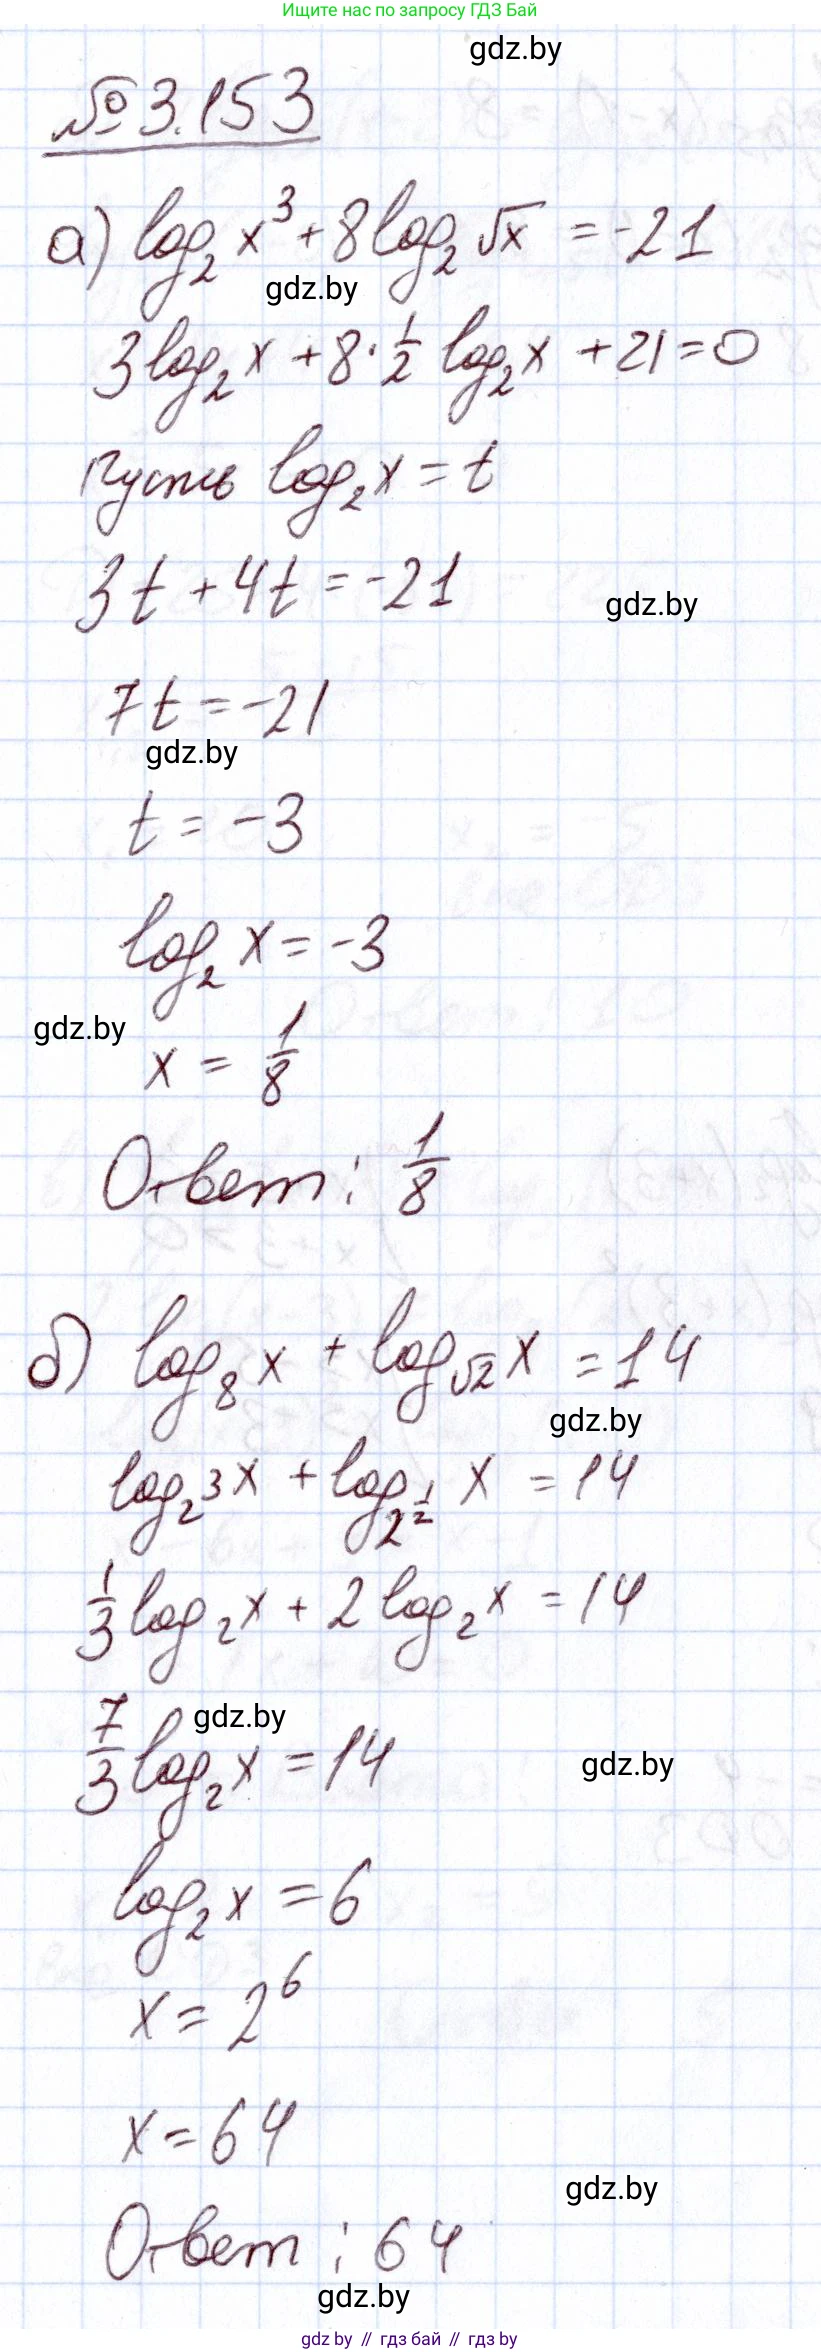 Ищите нас по запросу ГДЗ Бай
gdz.by
№ 3.153
а) log₂ x³ + 8 log₂ √x = -21
gdz.by
3 log₂ x + 8 · 1/2 log₂ x + 21 = 0
Пусть log₂ x = t
3t + 4t = -21
gdz.by
7t = -21
gdz.by
t = -3
log₂ x = -3
gdz.by
x = 1/8
Ответ: 1/8
б) log₈ x + log_√2 x = 14
gdz.by
log_2³ x + log_2^(1/2) x = 14
1/3 log₂ x + 2 log₂ x = 14
gdz.by
7/3 log₂ x = 14
gdz.by
log₂ x = 6
x = 2⁶
x = 64
gdz.by
Ответ: 64
gdz.by
gdz.by // гдз бай // гдз by